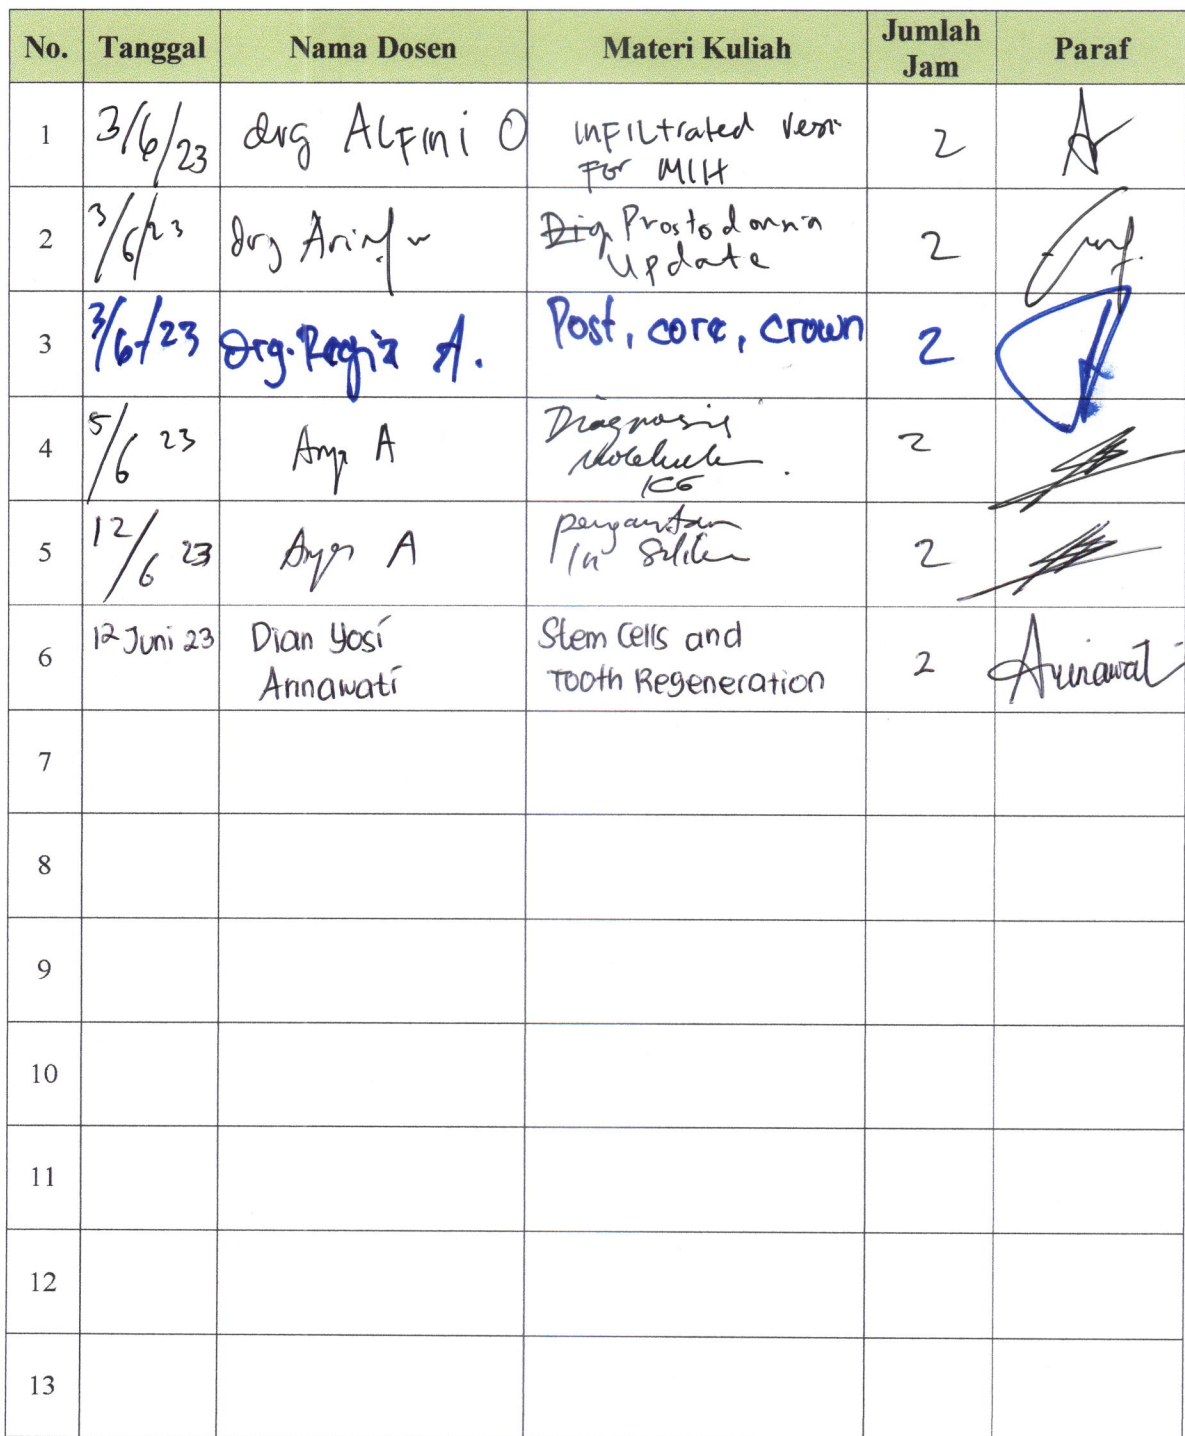 No. Tanggal Nama Dosen Materi Kuliah Jumlah Jam Paraf
1 3/6/23 drg ALFini O inFiltrated resin
For MIH 2
2 3/6/23 drg Prostodonsia
Update 2
3 3/6/23 Drg. Regia A. Post, core, crown 2
4 5/6 23 A Diagnosis
molekuler
KG 2
5 12/6 23 A pengantar
In Siliko 2
6 12 Juni 23 Dian Yosi
Arinawati Stem Cells and
Tooth Regeneration 2 Arinawati
7
8
9
10
11
12
13